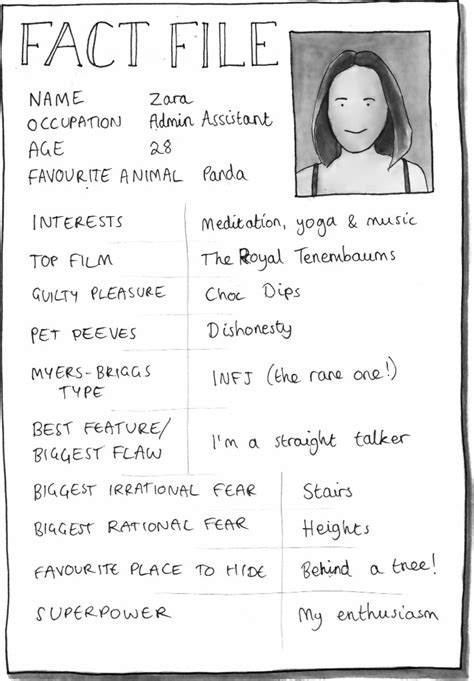 FACT FILE
NAME Zara
OCCUPATION Admin Assistant
AGE 28
FAVOURITE ANIMAL Panda
INTERESTS Meditation, yoga & music
TOP FILM The Royal Tenembaums
GUILTY PLEASURE Choc Dips
PET PEEVES Dishonesty
MYERS-BRIGGS
TYPE INFJ (the rare one!)
BEST FEATURE/
BIGGEST FLAW I'm a straight talker
BIGGEST IRRATIONAL FEAR Stairs
BIGGEST RATIONAL FEAR Heights
FAVOURITE PLACE TO HIDE Behind a tree!
SUPERPOWER My enthusiasm